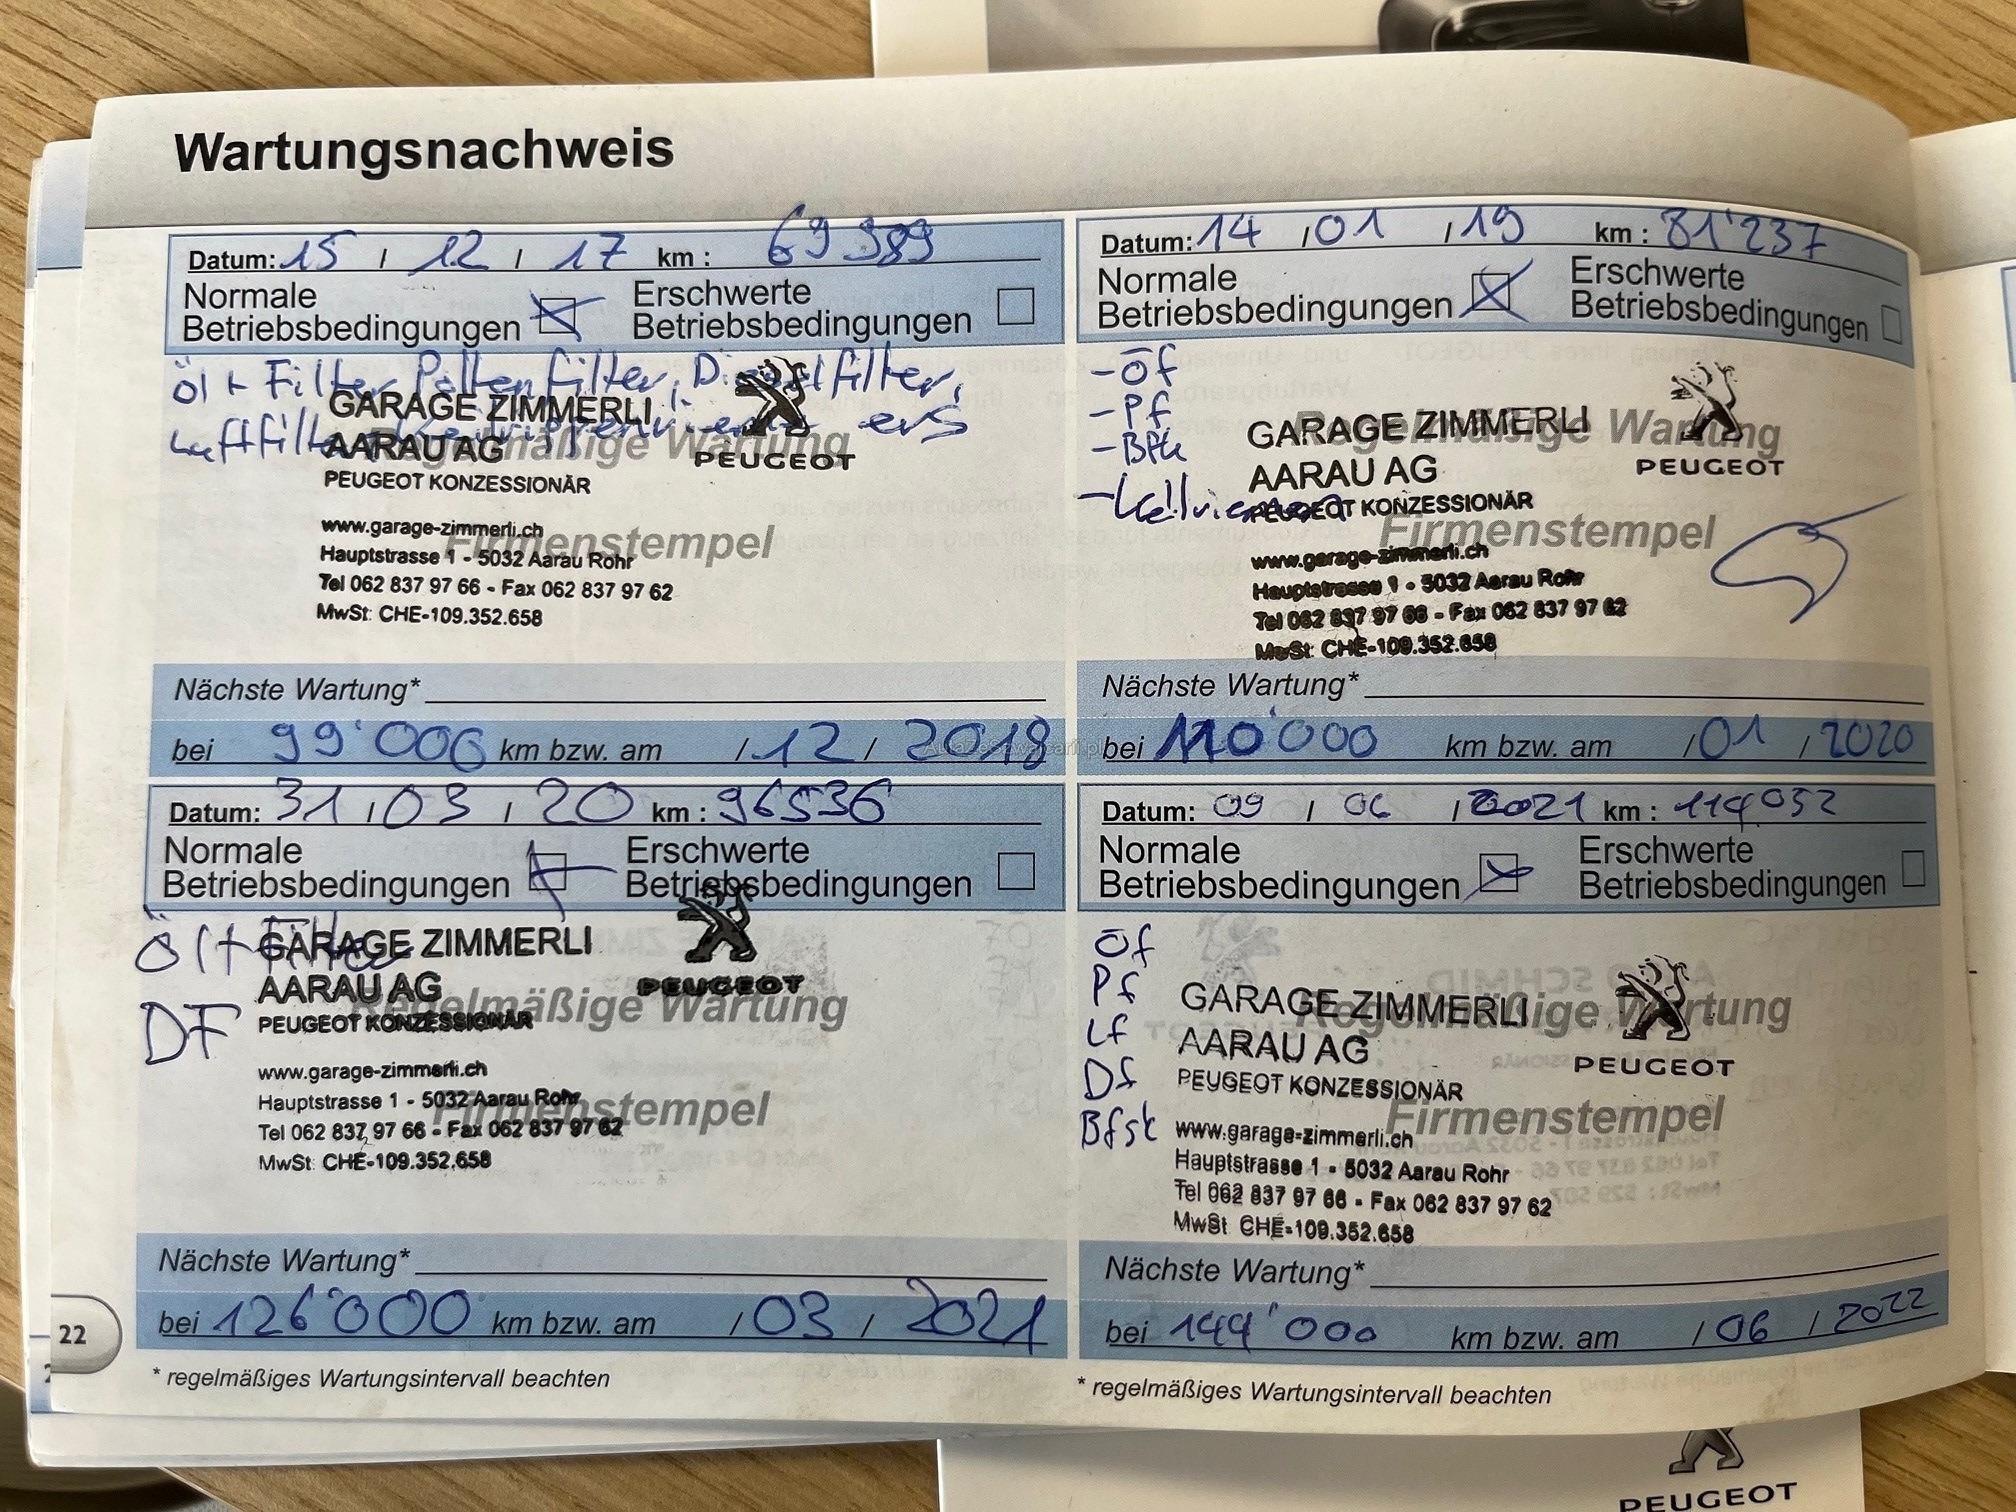 Wartungsnachweis
Datum: 15 / 12 / 17 km : 69 989
Normale Betriebsbedingungen
Erschwerte Betriebsbedingungen
Öl + Filter, Pollenfilter, Dieselfilter,
Luftfilter ers
GARAGE ZIMMERLI
AARAU AG
PEUGEOT KONZESSIONÄR
PEUGEOT
Regelmäßige Wartung
www.garage-zimmerli.ch
Firmenstempel
Hauptstrasse 1 - 5032 Aarau Rohr
Tel 062 837 97 66 - Fax 062 837 97 62
MwSt: CHE-109.352.658
Nächste Wartung*
bei 99'000 km bzw. am / 12 / 2018
Datum: 14 / 01 / 19 km : 81'237
Normale Betriebsbedingungen
Erschwerte Betriebsbedingungen
- Öf
- Pf
- Bfk
GARAGE ZIMMERLI
AARAU AG
PEUGEOT KONZESSIONÄR
PEUGEOT
Regelmäßige Wartung
www.garage-zimmerli.ch
Firmenstempel
Hauptstrasse 1 - 5032 Aarau Rohr
Tel 062 837 97 66 - Fax 062 837 97 62
MwSt: CHE-109.352.658
Nächste Wartung*
bei 110'000 km bzw. am / 01 / 2020
AutazeSzwajcarii.pl
Datum: 31 / 03 / 20 km : 96536
Normale Betriebsbedingungen
Erschwerte Betriebsbedingungen
Öl + Filter
DF
GARAGE ZIMMERLI
AARAU AG
PEUGEOT KONZESSIONÄR
PEUGEOT
Regelmäßige Wartung
www.garage-zimmerli.ch
Firmenstempel
Hauptstrasse 1 - 5032 Aarau Rohr
Tel 062 837 97 66 - Fax 062 837 97 62
MwSt: CHE-109.352.658
Nächste Wartung*
bei 126'000 km bzw. am / 03 / 2021
* regelmäßiges Wartungsintervall beachten
Datum: 09 / 06 / 2021 km : 114'052
Normale Betriebsbedingungen
Erschwerte Betriebsbedingungen
Öf
Pf
Lf
Df
Bfsk
GARAGE ZIMMERLI
AARAU AG
PEUGEOT KONZESSIONÄR
PEUGEOT
Regelmäßige Wartung
www.garage-zimmerli.ch
Firmenstempel
Hauptstrasse 1 - 5032 Aarau Rohr
Tel 062 837 97 66 - Fax 062 837 97 62
MwSt: CHE-109.352.658
Nächste Wartung*
bei 144'000 km bzw. am / 06 / 2022
* regelmäßiges Wartungsintervall beachten
22
PEUGEOT